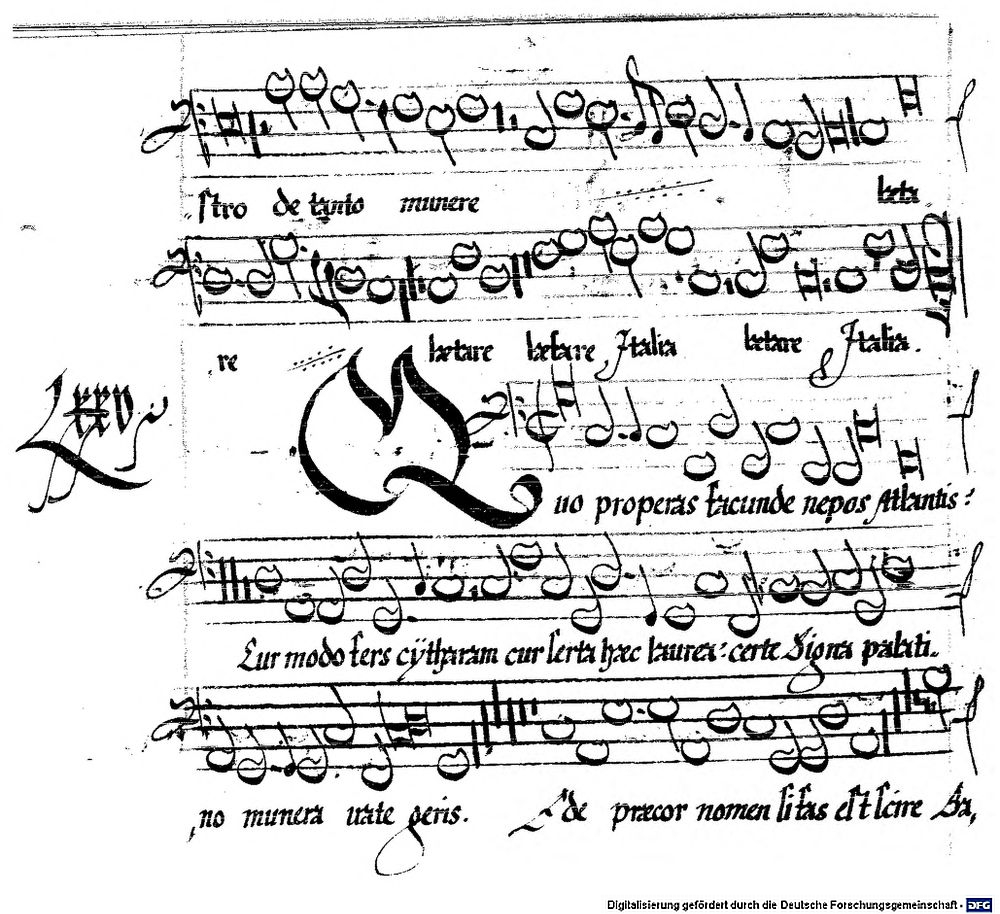 stro de tanto munere læta
re lætare lætare Italia lætare Italia.
Lxxv
Quo properas facunde nepos Atlantis:
Cur modo fers cÿtharam cur serta hæc laurea: certe Digna palati..
no munera uate geris. Ede præcor nomen si fas est scire Ba,
Digitalisierung gefördert durch die Deutsche Forschungsgemeinschaft - DFG